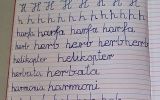 H H H H H H
h h h h h h h h h h h h
harfa harfa harfa
herb herb herb herb herb
helikopter helikopter
herbata herbata
harmonia harmoni